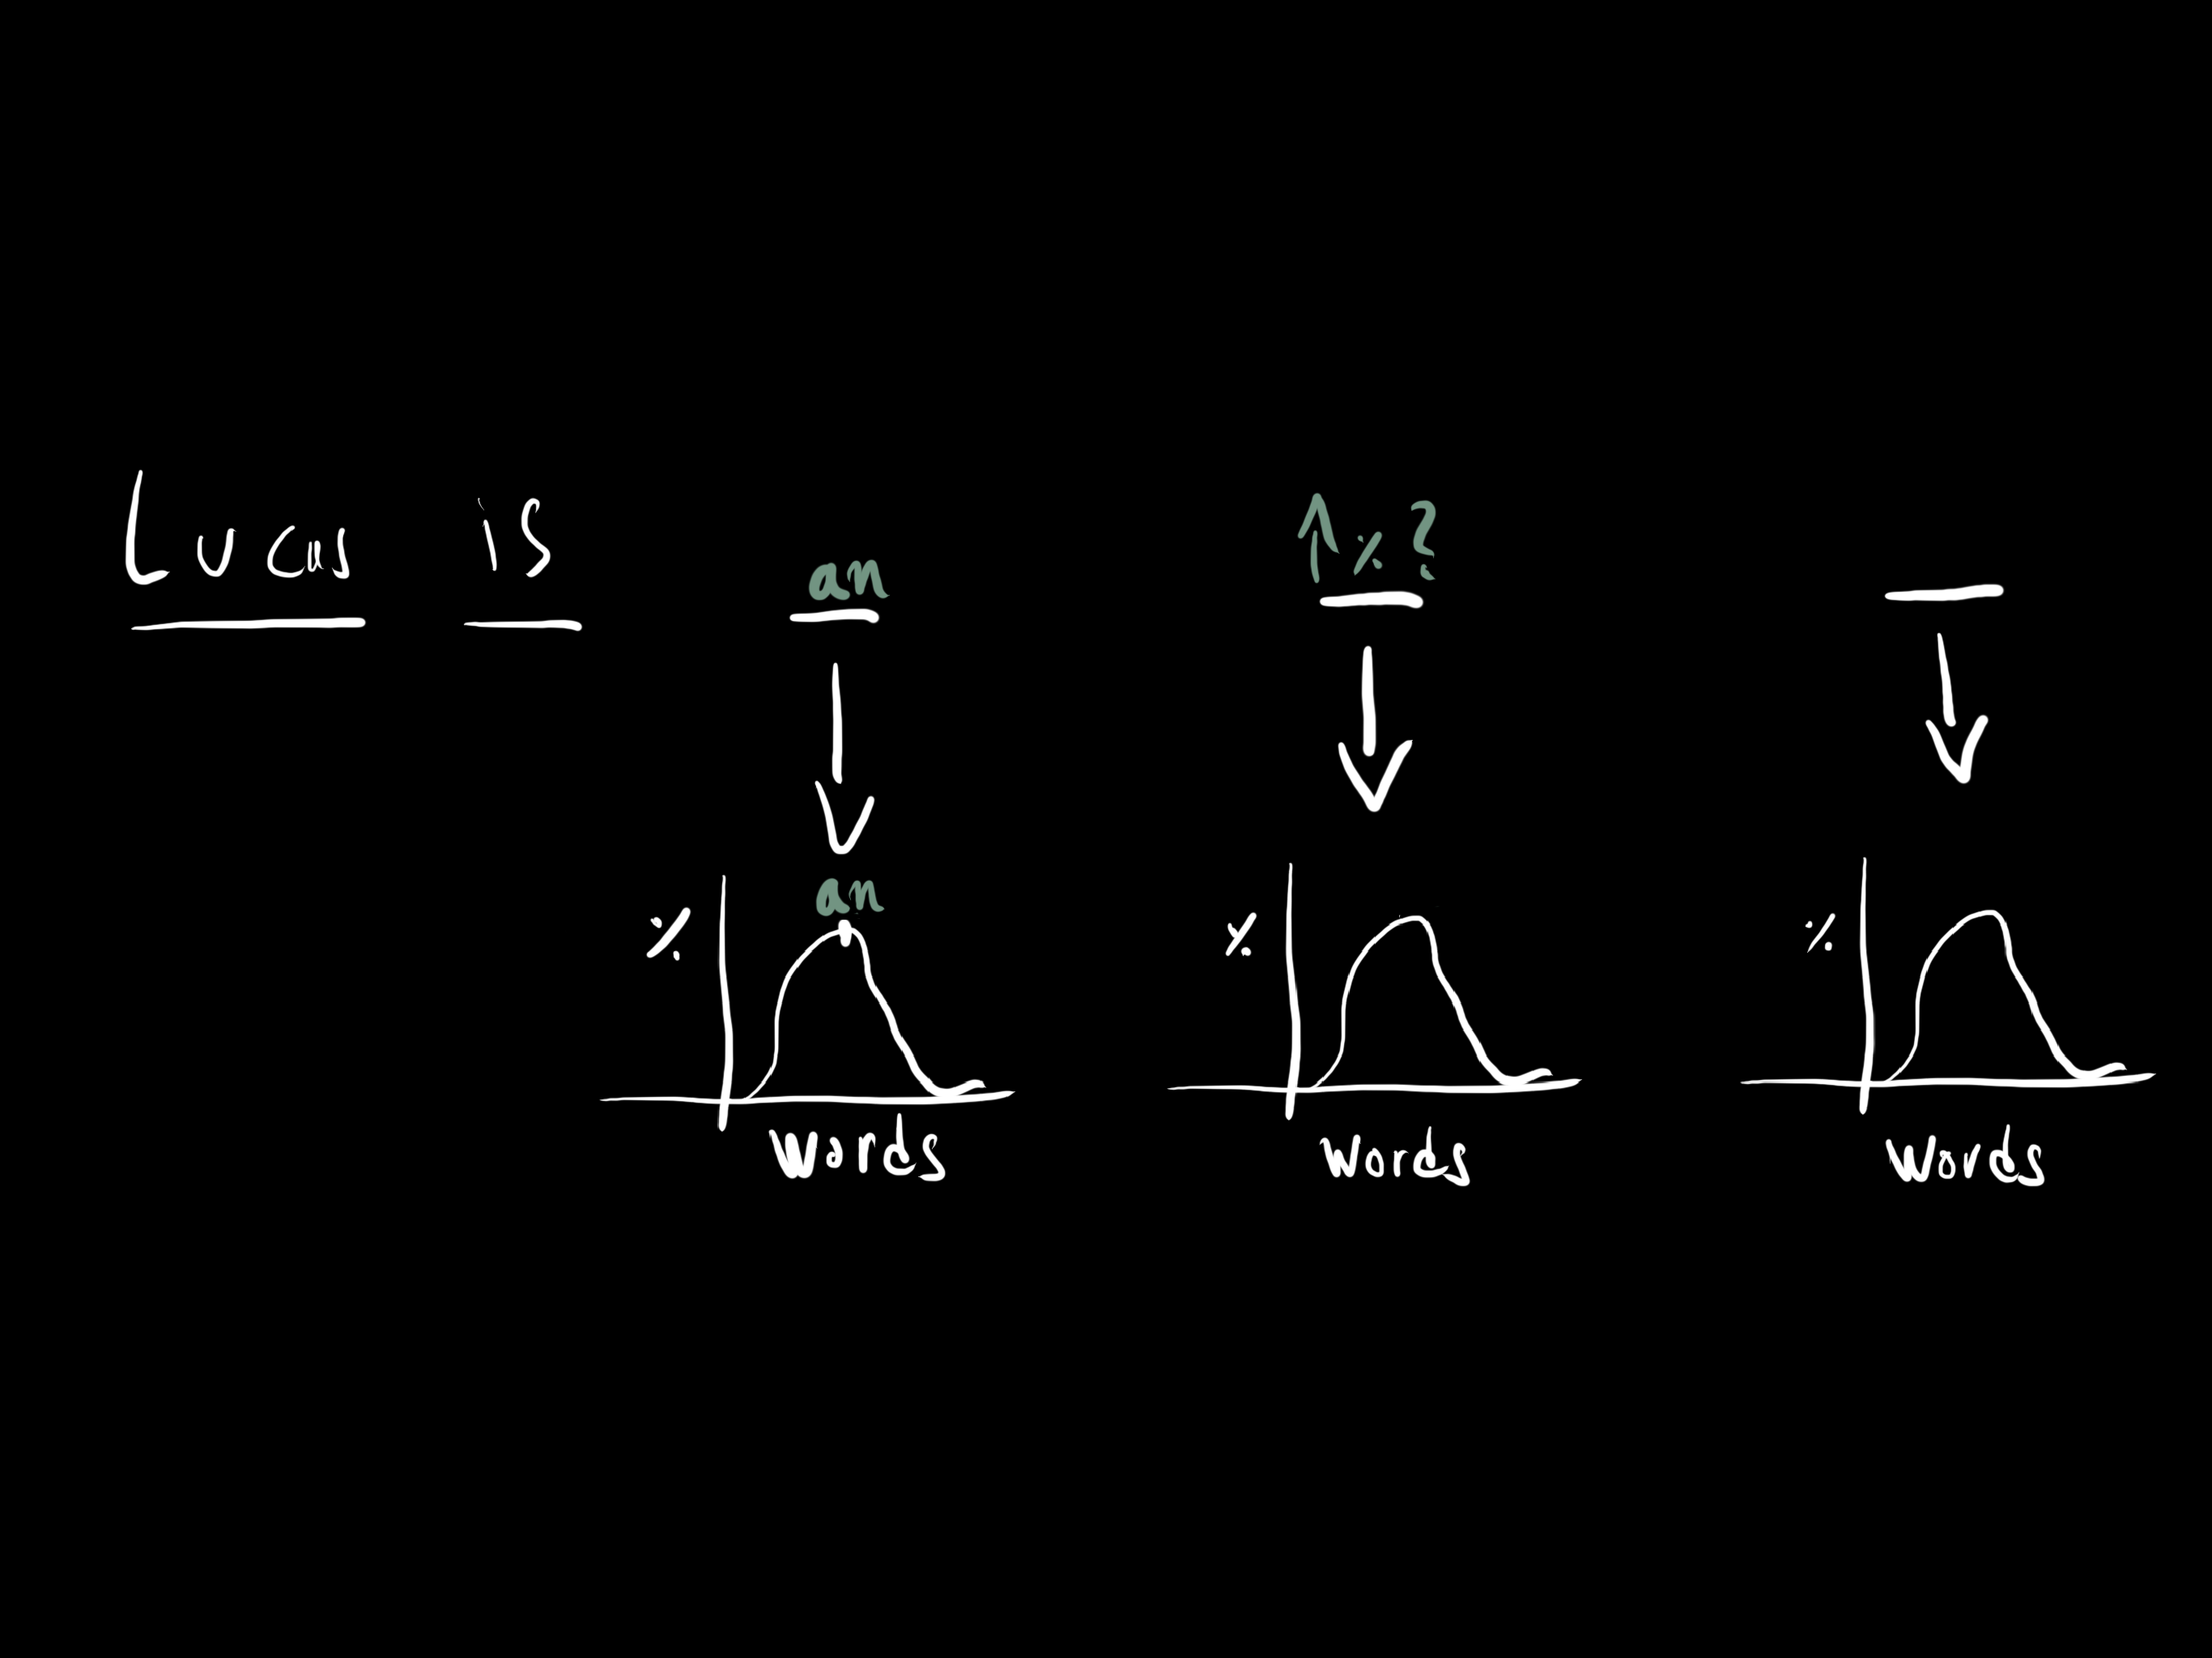 Lucas is an ↑%?
an
% % %
Words Words Words